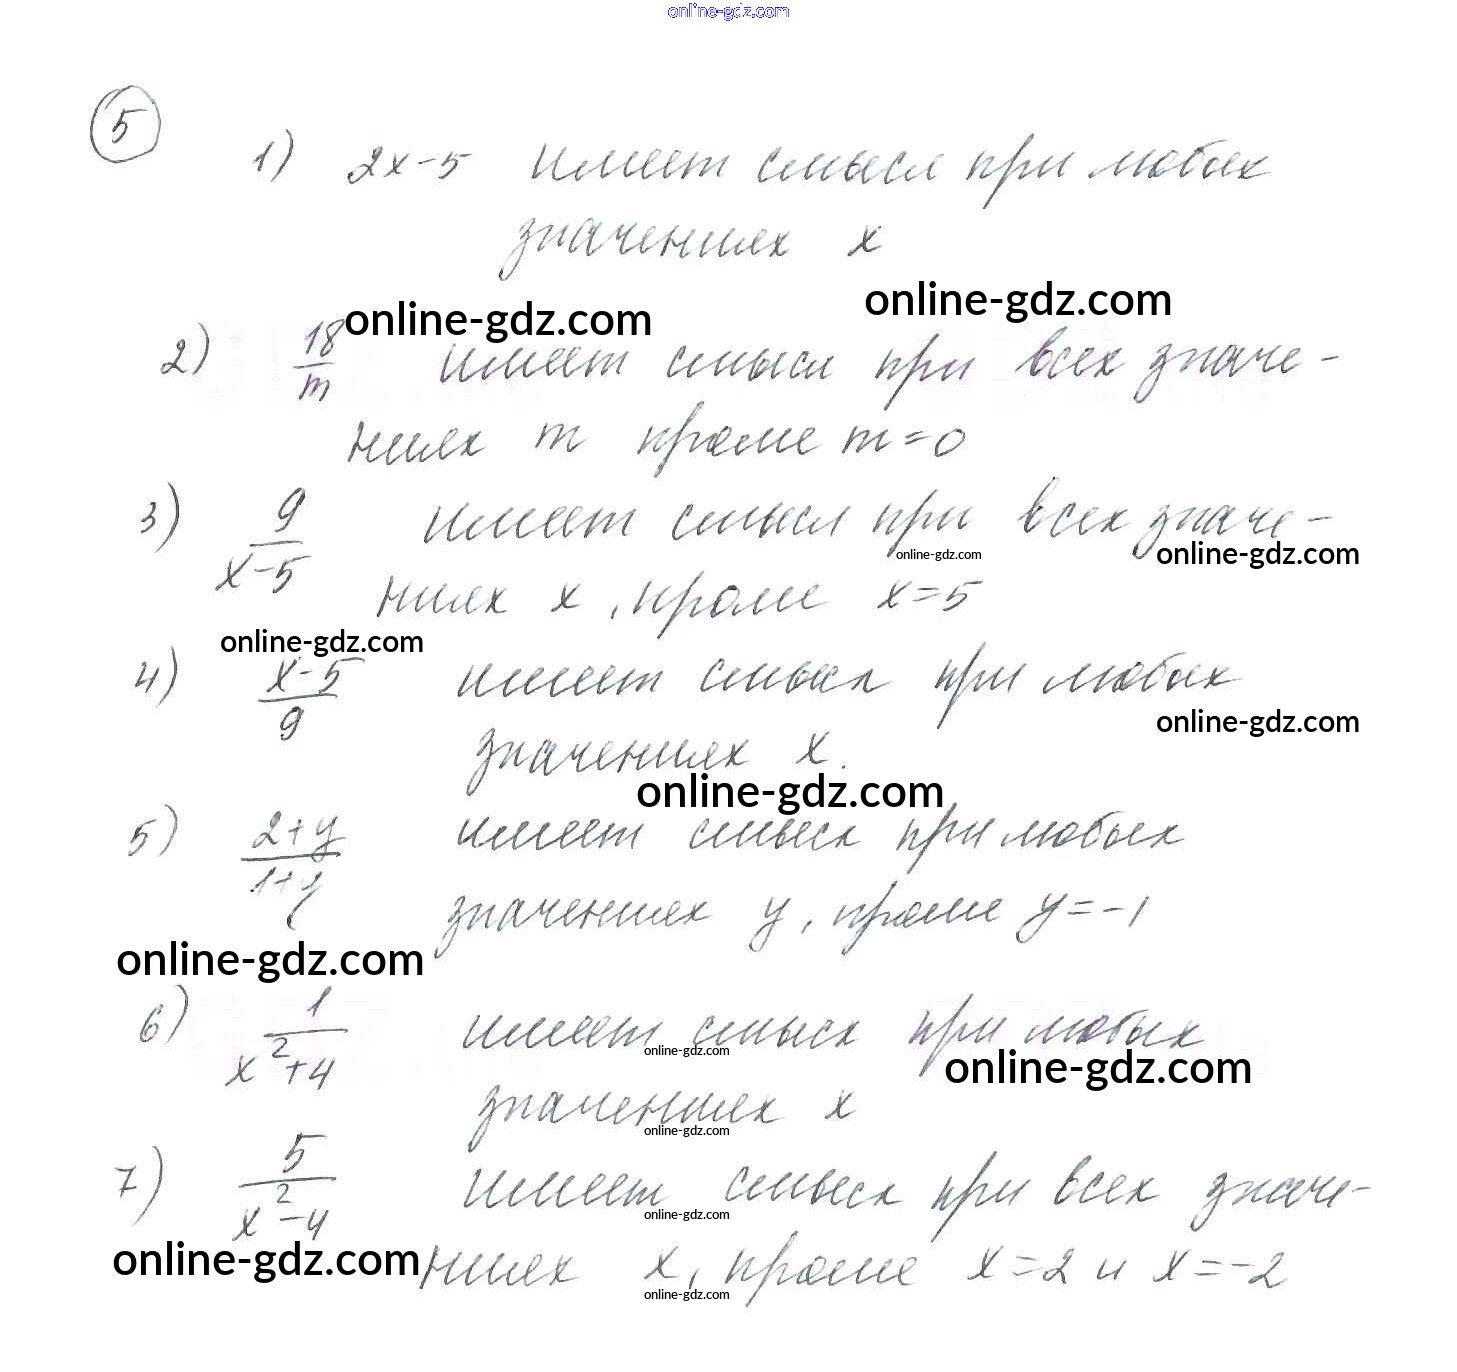 online-gdz.com
5
1) 2x-5 имеет смысл при любых
значениях x
online-gdz.com
online-gdz.com
2) 18/m имеет смысл при всех значе-
ниях m кроме m=0
3) 9/(x-5) имеет смысл при всех значе-
online-gdz.com
online-gdz.com
ниях x, кроме x=5
online-gdz.com
4) (x-5)/9 имеет смысл при любых
online-gdz.com
значениях x.
online-gdz.com
5) (2+y)/(1+y) имеет смысл при любых
значениях y, кроме y=-1
online-gdz.com
6) 1/(x²+4) имеет смысл при любых
online-gdz.com
online-gdz.com
значениях x
online-gdz.com
7) 5/(x²-4) имеет смысл при всех значе-
online-gdz.com
online-gdz.com
ниях x, кроме x=2 и x=-2
online-gdz.com